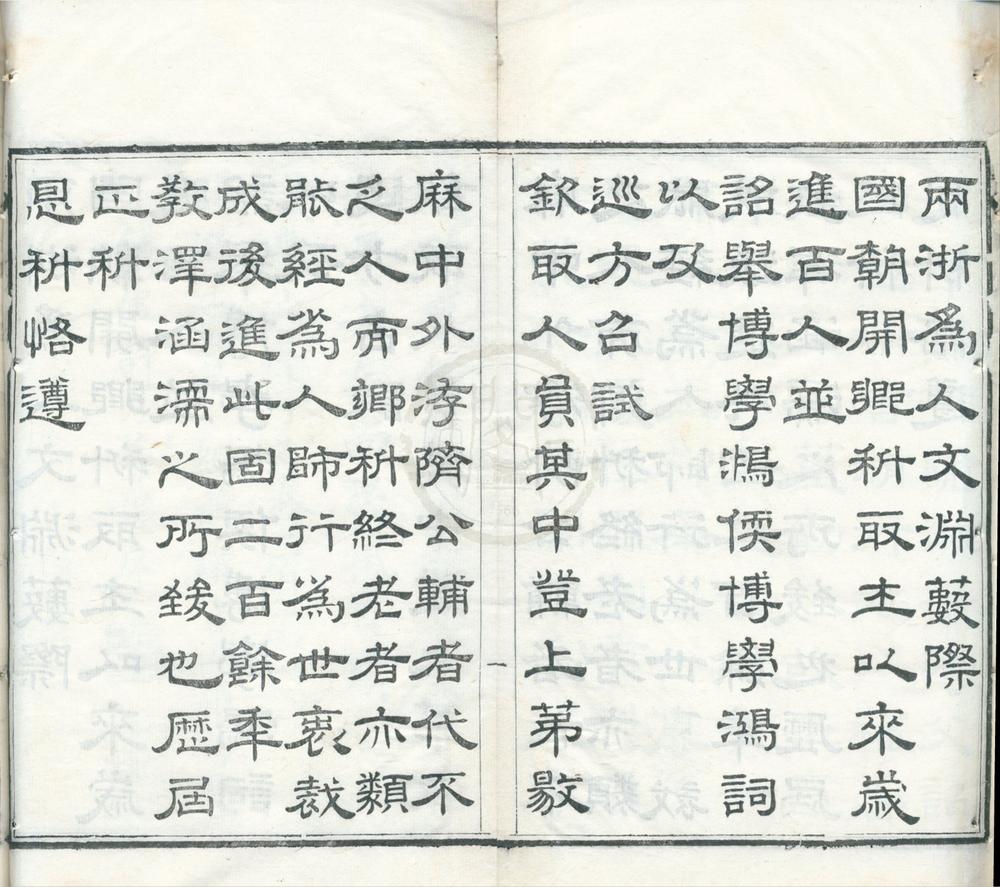 兩浙為人文淵藪際
國朝開鄉科取士以來歲
進百人並
詔舉博學鴻儒博學鴻詞
以及
巡方召試
欽取人員其中登上第敭
麻中外洊隮公輔者代不
乏人而鄉科終老者亦類
能經為人師行為世表裁
成後進此固二百餘年
教澤涵濡之所致也歷屆
正科
恩科恪遵